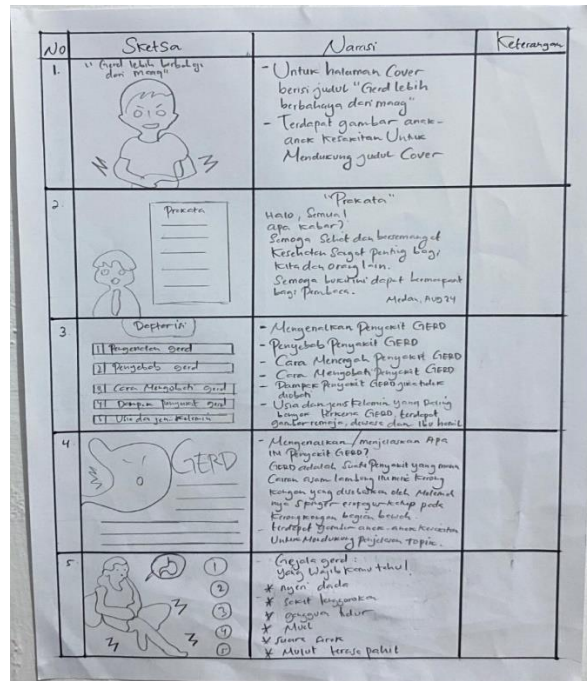 No Sketsa Narasi Keterangan
1.
"Gerd lebih berbahaya
dari maag"
- Untuk halaman Cover
berisi judul "Gerd lebih
berbahaya dari maag"
- Terdapat gambar anak-
anak kesakitan Untuk
Mendukung judul Cover
2.
Prokata
"Prokata"
Halo, Semua!
apa kabar?
Semoga Sehat dan bersemangat
Kesehatan Sangat penting bagi
kita dan orang lain.
Semoga buku ini dapat bermanfaat
bagi Pembaca.
Medan, Aug 24
3
Daftar isi
1 Pengenalan gerd
2 Penyebab gerd
3 Cara Mengobati gerd
4 Dampak penyakit gerd
5 Usia dan jenis kelamin
- Mengenalkan Penyakit GERD
- Penyebab Penyakit GERD
- Cara Mencegah Penyakit GERD
- Cara Mengobati Penyakit GERD
- Dampak Penyakit GERD jika tidak
diobati
- Usia dan jenis Kelamin yang Paling
banyak terkena GERD, terdapat
gambar remaja, dewasa dan Ibu hamil
4
GERD
- Mengenalkan/menjelaskan Apa
Penyakit GERD?
GERD adalah Suatu Penyakit yang mana
Cairan asam lambung
kongan yang disebabkan oleh
nya pada
Kerongkongan bagian bawah
- terdapat gambar anak-anak kesakitan
Untuk Mendukung Penjelasan Topik.
5
1
2
3
4
5
- Gejala gerd:
yang Wajib kamu tahu!
* nyeri dada
* sakit
* tidur
* Mual
* suara Serak
* Mulut terasa pahit